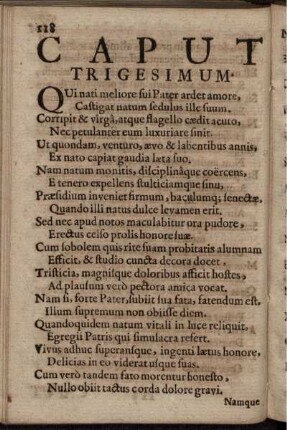 118
CAPUT
TRIGESIMUM.
QUi nati meliore sui Pater ardet amore,
Castigat natum sedulus ille suum.
Corripit & virgâ, atque flagello cædit acuto,
Nec petulanter eum luxuriare sinit.
Ut quondam, venturo, ævo & labentibus annis,
Ex nato capiat gaudia læta suo.
Nam natum monitis, disciplináque coërcens,
E tenero expellens stulticiamque sinu,
Præsidium inveniet firmum, baculumq; senectæ,
Quando illi natus dulce levamen erit.
Sed nec apud notos maculabitur ora pudore,
Erectus celso prolis honore suæ.
Cum sobolem quis rite suam probitatis alumnam
Efficit, & studio cuncta decora docet,
Tristicia, magnisque doloribus afficit hostes,
Ad plausum verò pectora amica vocat.
Nam si, forte Pater, subiit sua fata, fatendum est,
Illum supremum non obiisse diem.
Quandoquidem natum vitali in luce reliquit,
Egregii Patris qui simulacra refert.
Vivus adhuc superansque, ingenti lætus honore,
Delicias in eo viderat usque suas.
Cum verò tandem fato morentur honesto,
Nullo obiit tactus corda dolore gravi.
Namque